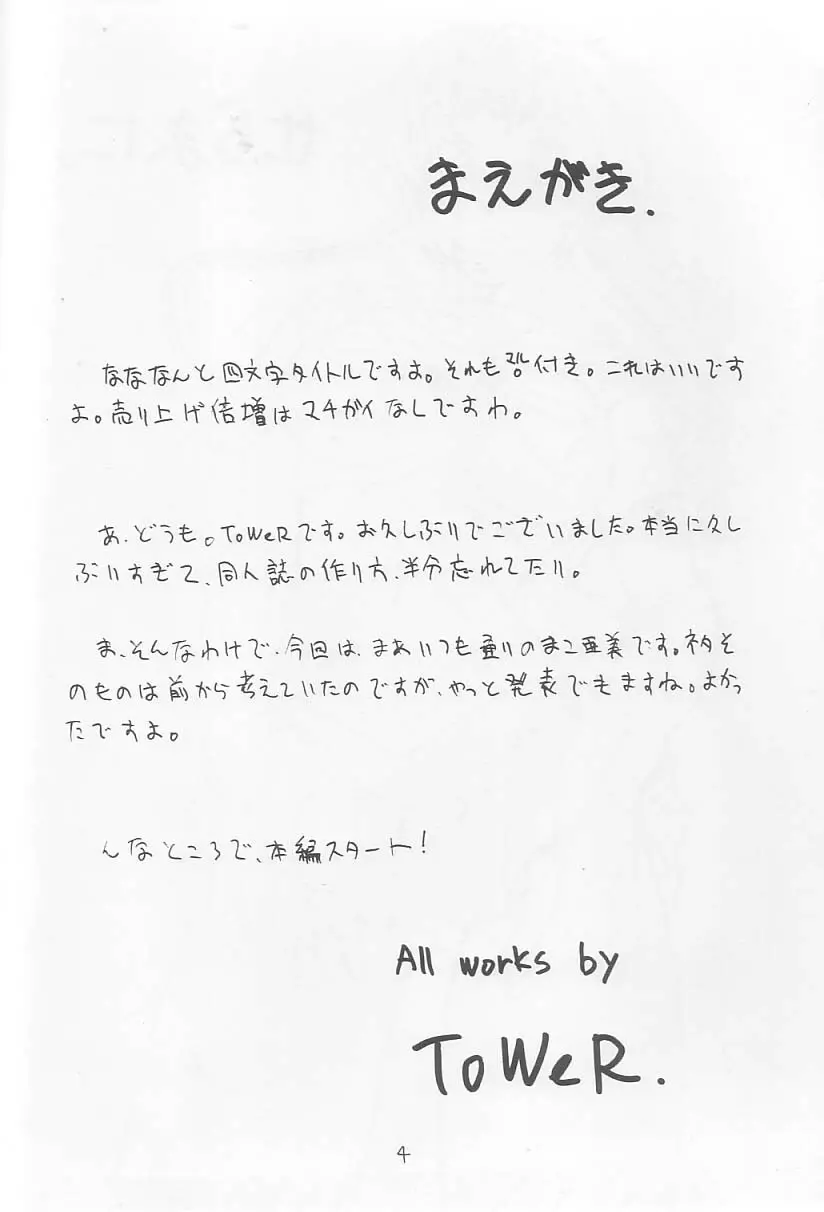 まえがき.
なななんと四文字タイトルですよ。それも 付き。これはいいです
よ。売り上げ倍増はマチガイなしですわ。
あ、どうも。ToWeRです。お久しぶりでございました。本当に久し
ぶりすぎて、同人誌の作り方、半分忘れてたり。
ま、そんなわけで、今回は、まあいつも通りのまこ亜美です。ネタそ
のものは前から考えていたのですが、やっと発表できますね。よかっ
たですよ。
んなところで、本編スタート!
All works by
ToWeR.
4